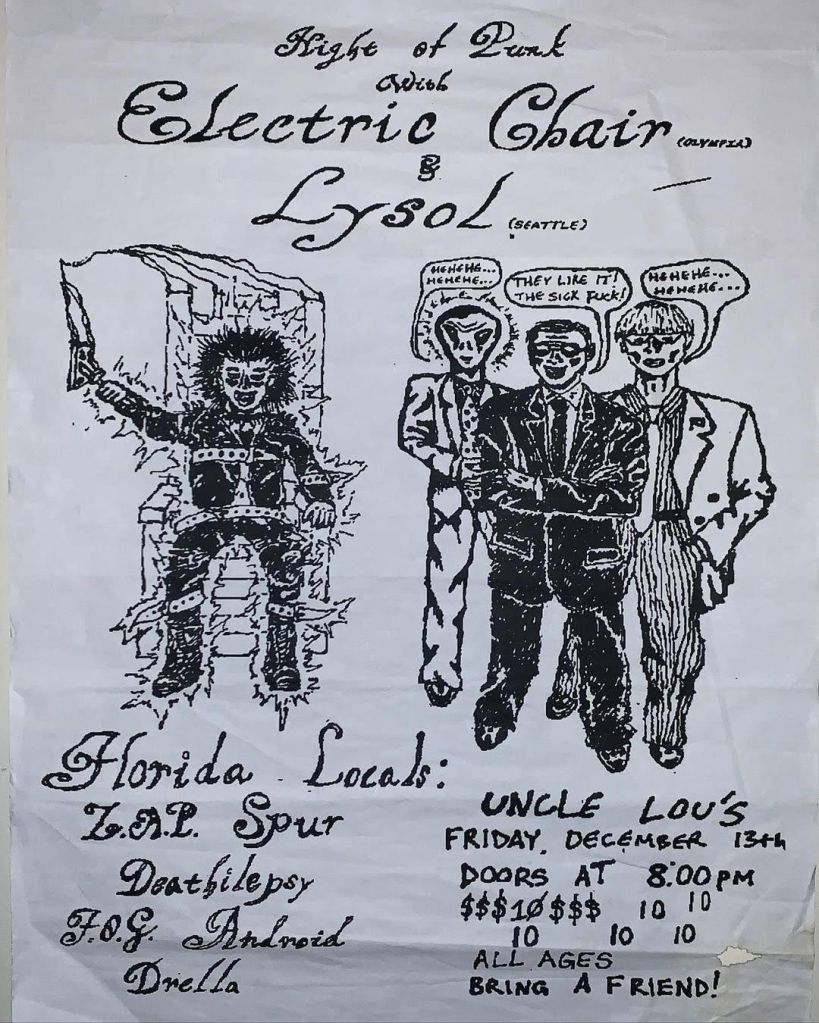 Night of Punk
With
Electric Chair (OLYMPIA)
&
Lysol (SEATTLE)
HEHEHE...
HEHEHE...
THEY LIKE IT!
THE SICK FUCK!
HEHEHE...
HEHEHE...
Florida Locals:
Z.A.P. Spur
Deathilepsy
F.O.G. Android
Drella
UNCLE LOU'S
FRIDAY, DECEMBER 13th
DOORS AT 8:00PM
$$$10$$$ 10 10
10 10 10
ALL AGES
BRING A FRIEND!